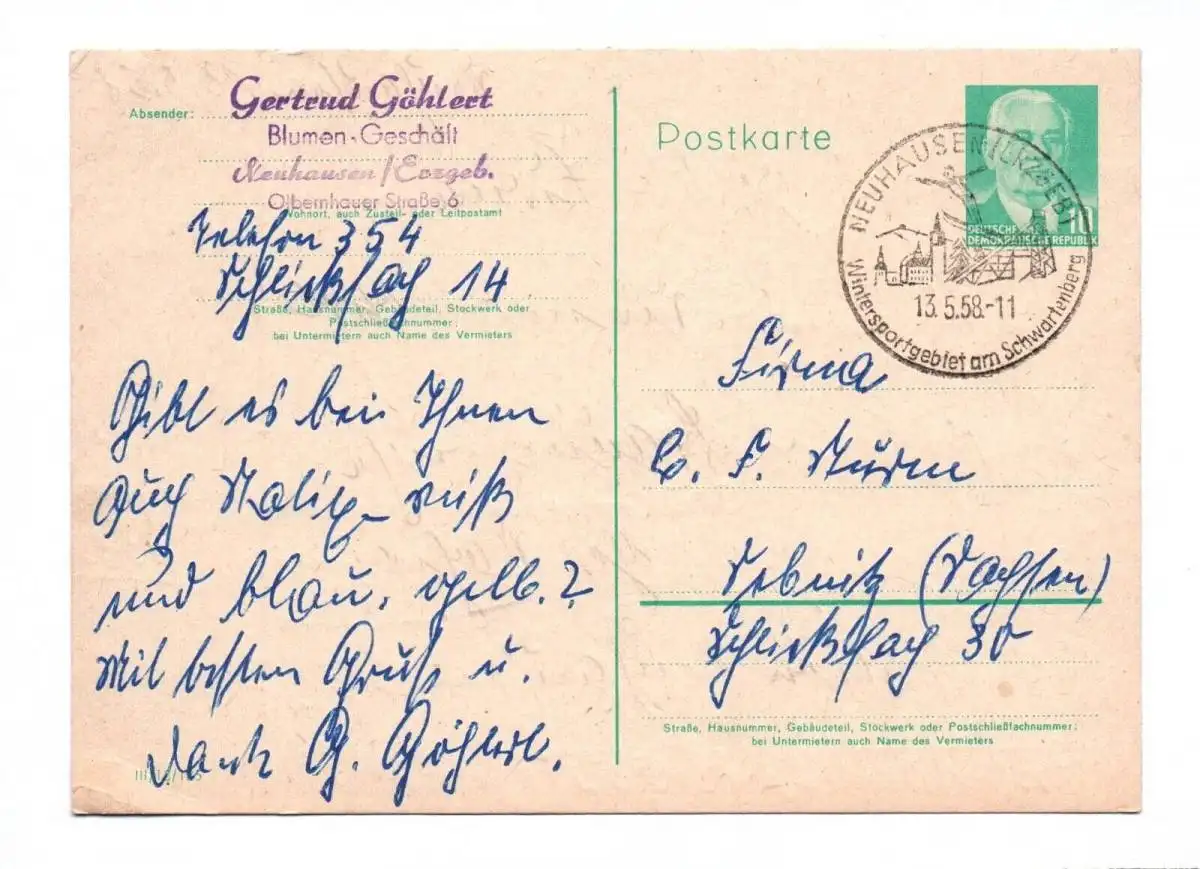 Absender:
Gertrud Göhlert
Blumen-Geschäft
Neuhausen/Erzgeb.
Olbernhauer Straße 6
Wohnort, auch Zustell- oder Leitpostamt
Telefon 354
Schließfach 14
Straße, Hausnummer, Gebäudeteil, Stockwerk oder
Postschließfachnummer;
bei Untermietern auch Name des Vermieters
Gibt es bei Ihnen
auch weiß
und blau, gelb.?
Mit besten Gruß u.
Dank G. Göhlert.
Postkarte
DEUTSCHE
DEMOKRATISCHE REPUBLIK
10
NEUHAUSEN (ERZGEB)
13.5.58.-11
Wintersportgebiet am Schwartenberg
Firma
C. F. Sturm
Sebnitz (Sachsen)
Schließfach 30
Straße, Hausnummer, Gebäudeteil, Stockwerk oder Postschließfachnummer;
bei Untermietern auch Name des Vermieters